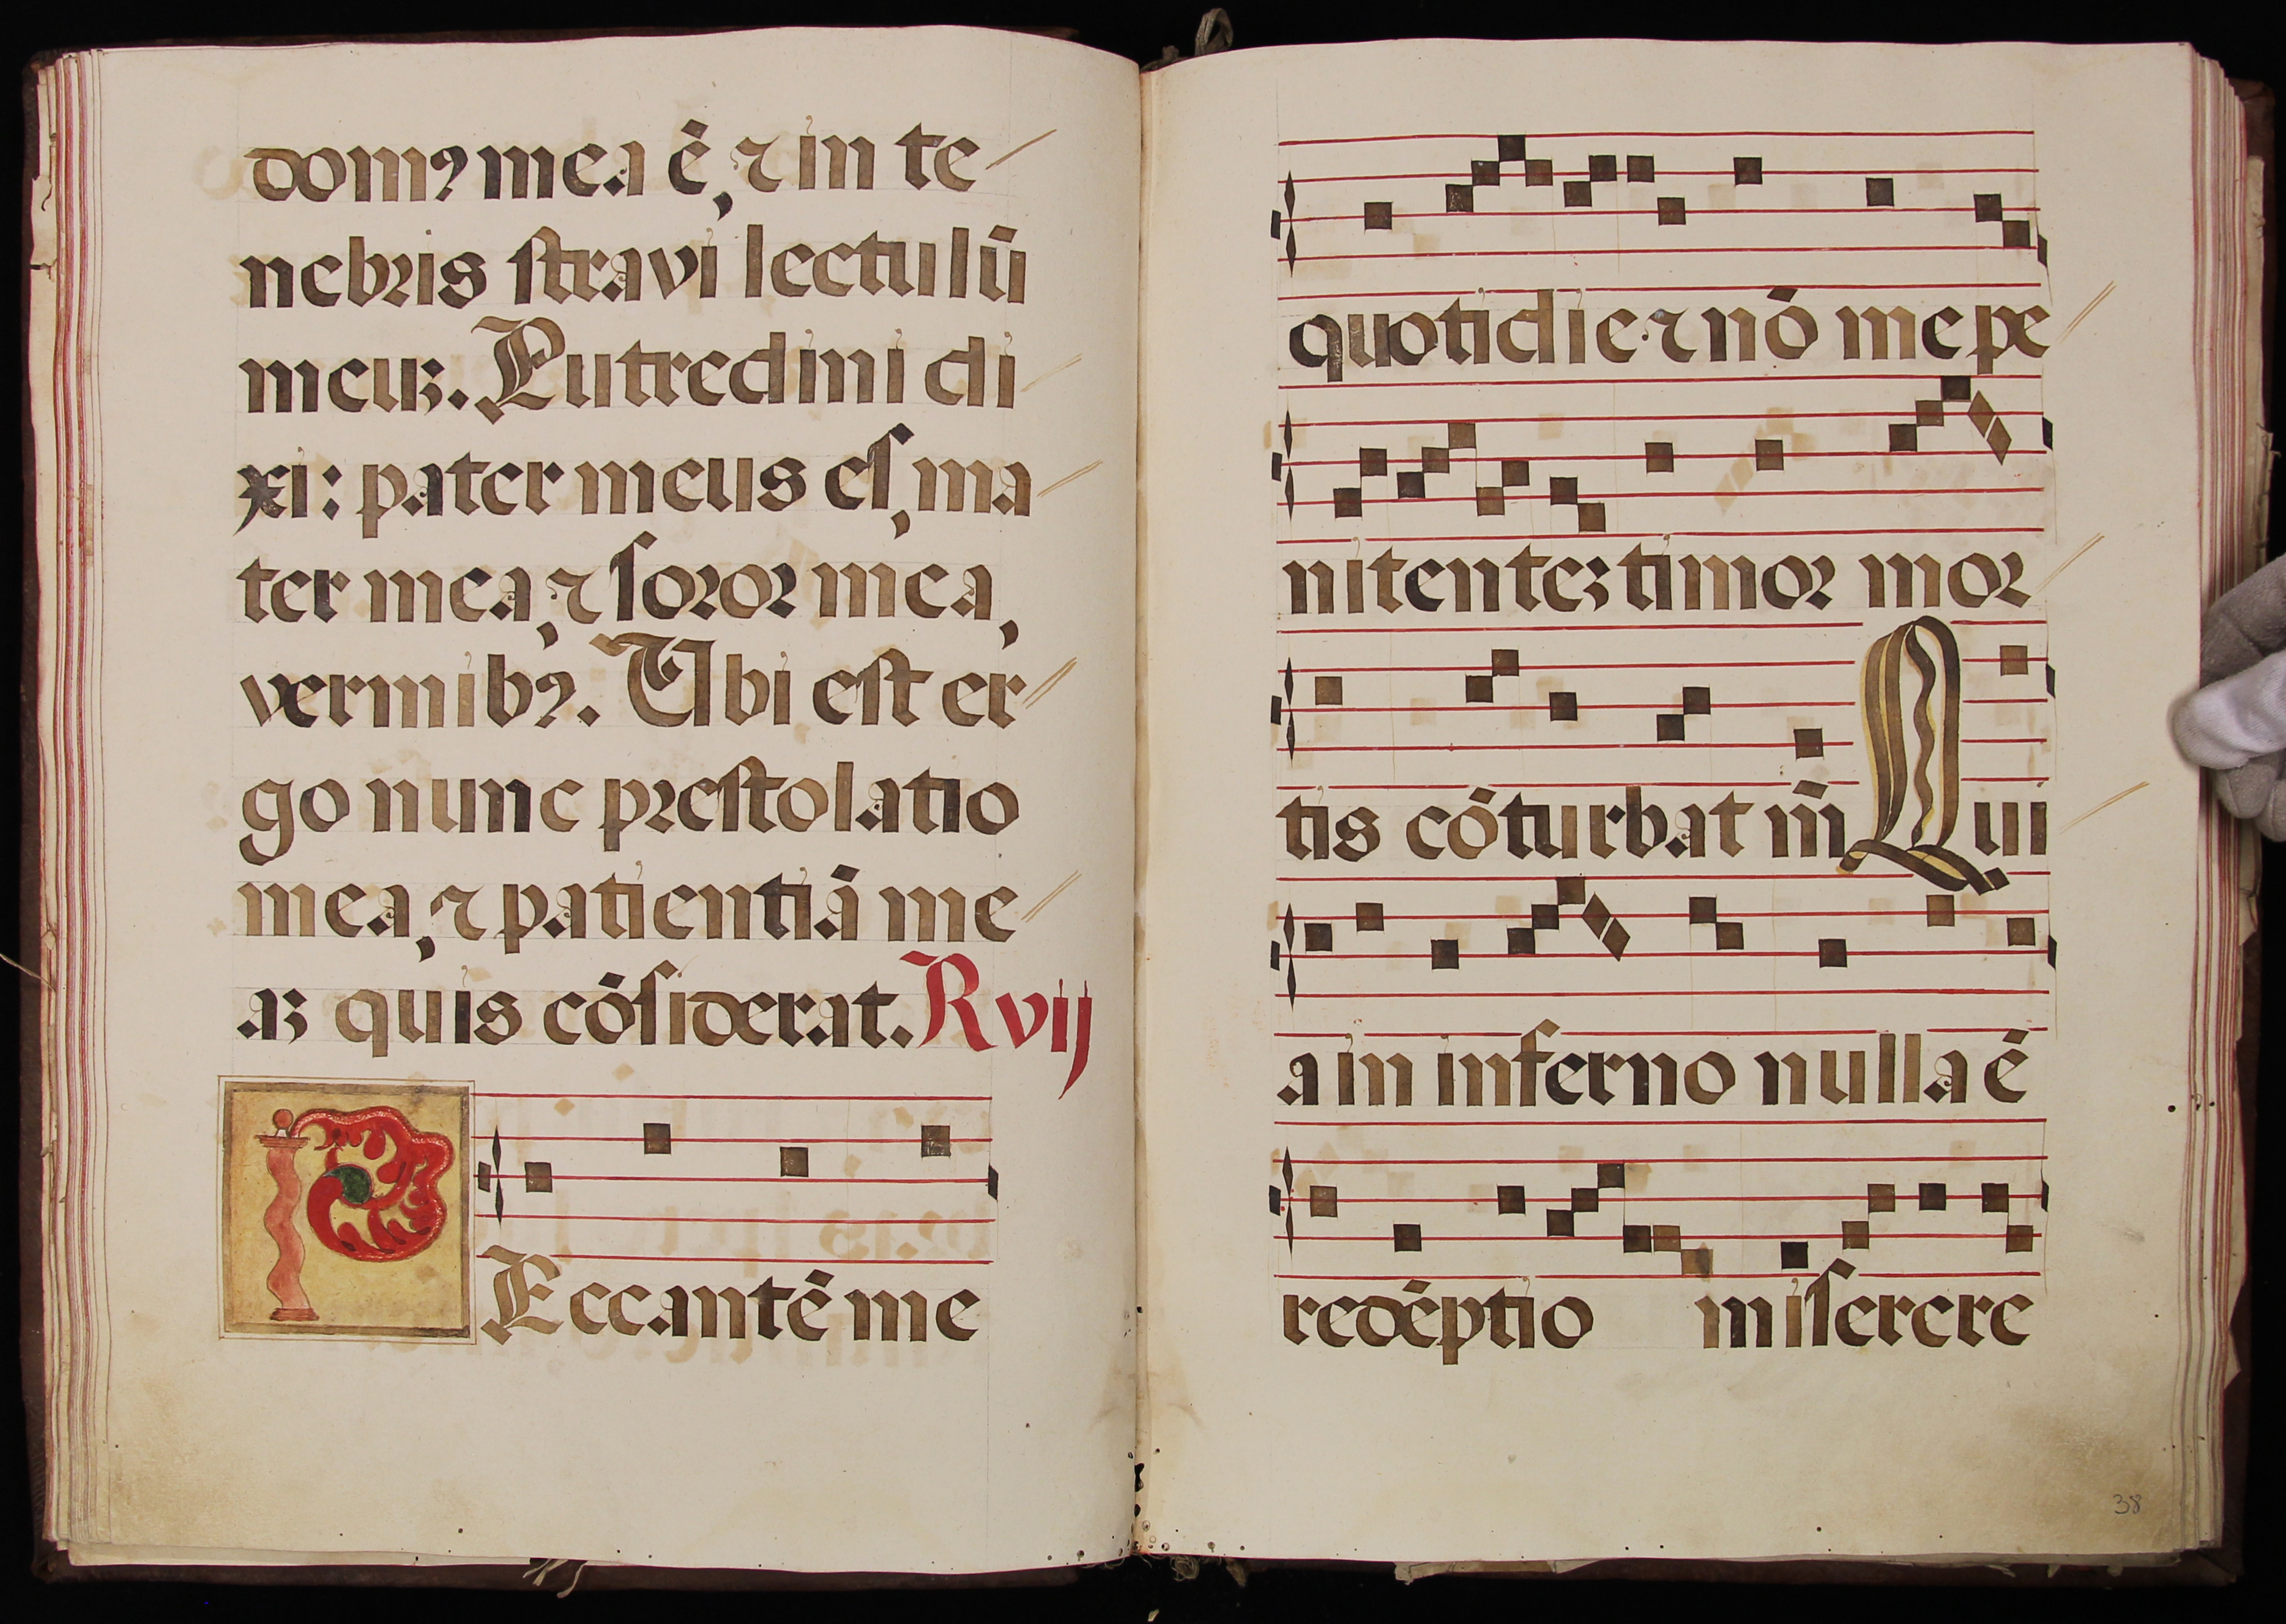 domꝯ mea ē, ⁊ in te
nebris stravi lectulū
meuꝫ. Putredini di
xi: pater meus es, ma
ter mea, ⁊ soror mea,
vermibꝯ. Ubi est er
go nunc prestolatio
mea, ⁊ patientiā me
aꝫ quis cōsiderat. R vij
PEccantē me
quotidie ⁊ nō me pe
nitenteꝫ timor mor
tis cōturbat m̄ Qui
a in inferno nulla ē
redēptio miserere
38